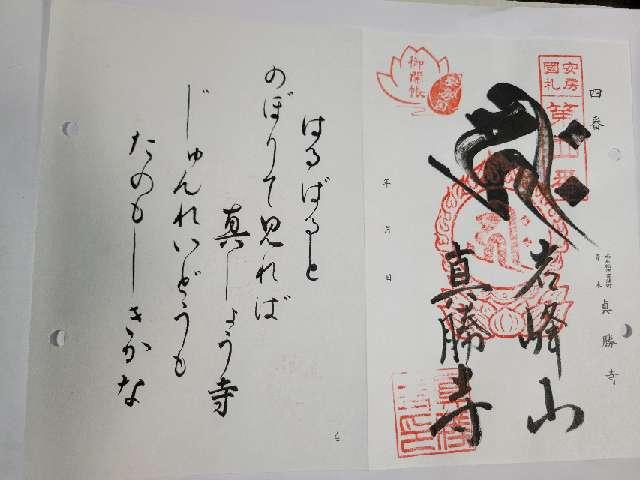 四番
真勝寺
安房
國札
第
番
岩峰山
真勝寺
年 月 日
御開帳
はるばると
のぼりて見れば
真しょう寺
じゅんれいどうも
たのもしきかな